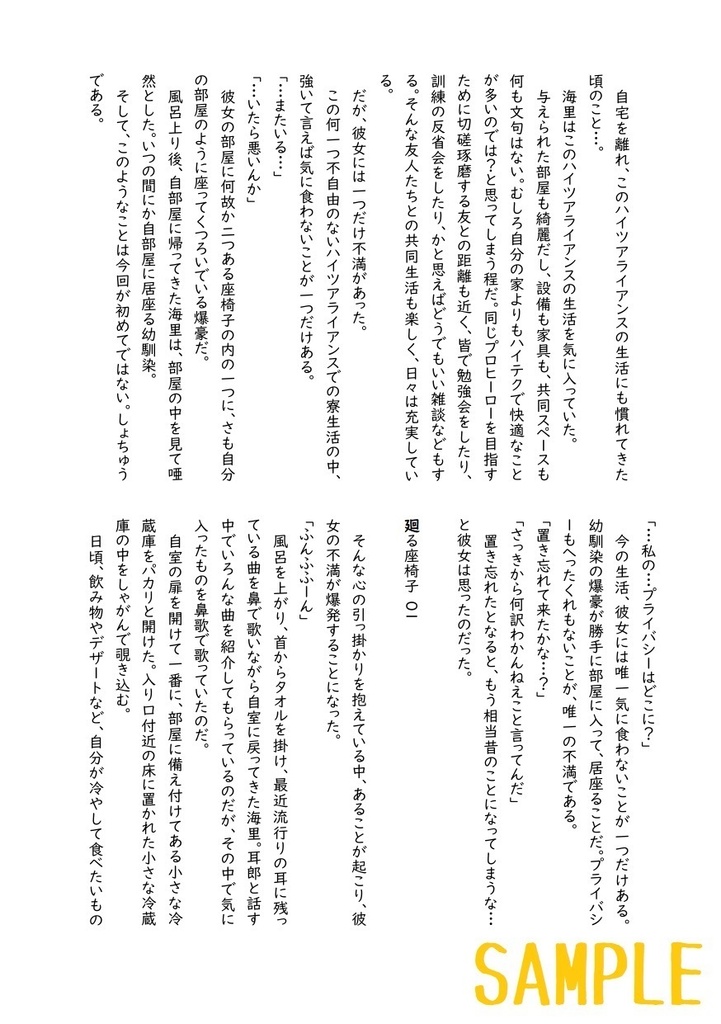 自宅を離れ、このハイツアライアンスの生活にも慣れてきた
頃のこと…。
海里はこのハイツアライアンスの生活を気に入っていた。
与えられた部屋も綺麗だし、設備も家具も、共同スペースも
何も文句はない。むしろ自分の家よりもハイテクで快適なこと
が多いのでは？と思ってしまう程だ。同じプロヒーローを目指す
ために切磋琢磨する友との距離も近く、皆で勉強会をしたり、
訓練の反省会をしたり、かと思えばどうでもいい雑談などもす
る。そんな友人たちとの共同生活も楽しく、日々は充実してい
る。
だが、彼女には一つだけ不満があった。
この何一つ不自由のないハイツアライアンスでの寮生活の中、
強いて言えば気に食わないことが一つだけある。
「……またいる…」
「…いたら悪いんか」
彼女の部屋に何故か二つある座椅子の内の一つに、さも自分
の部屋のように座ってくつろいでいる爆豪だ。
風呂上り後、自部屋に帰ってきた海里は、部屋の中を見て唖
然とした。いつの間にか自部屋に居座る幼馴染。
そして、このようなことは今回が初めてではない。しょちゅう
である。
「…私の…プライバシーはどこに？」
今の生活、彼女には唯一気に食わないことが一つだけある。
幼馴染の爆豪が勝手に部屋に入って、居座ることだ。プライバシ
ーもへったくれもないことが、唯一の不満である。
「置き忘れて来たかな…？」
「さっきから何訳わかんねえこと言ってんだ」
置き忘れたとなると、もう相当昔のことになってしまうな…
と彼女は思ったのだった。
廻る座椅子 01
そんな心の引っ掛かりを抱えている中、あることが起こり、彼
女の不満が爆発することになった。
「ふんふふーん」
風呂を上がり、首からタオルを掛け、最近流行りの耳に残っ
ている曲を鼻で歌いながら自室に戻ってきた海里。耳郎と話す
中でいろんな曲を紹介してもらっているのだが、その中で気に
入ったものを鼻歌で歌っていたのだ。
自室の扉を開けて一番に、部屋に備え付けてある小さな冷
蔵庫をパカリと開けた。入り口付近の床に置かれた小さな冷蔵
庫の中をしゃがんで覗き込む。
日頃、飲み物やデザートなど、自分が冷やして食べたいもの
SAMPLE